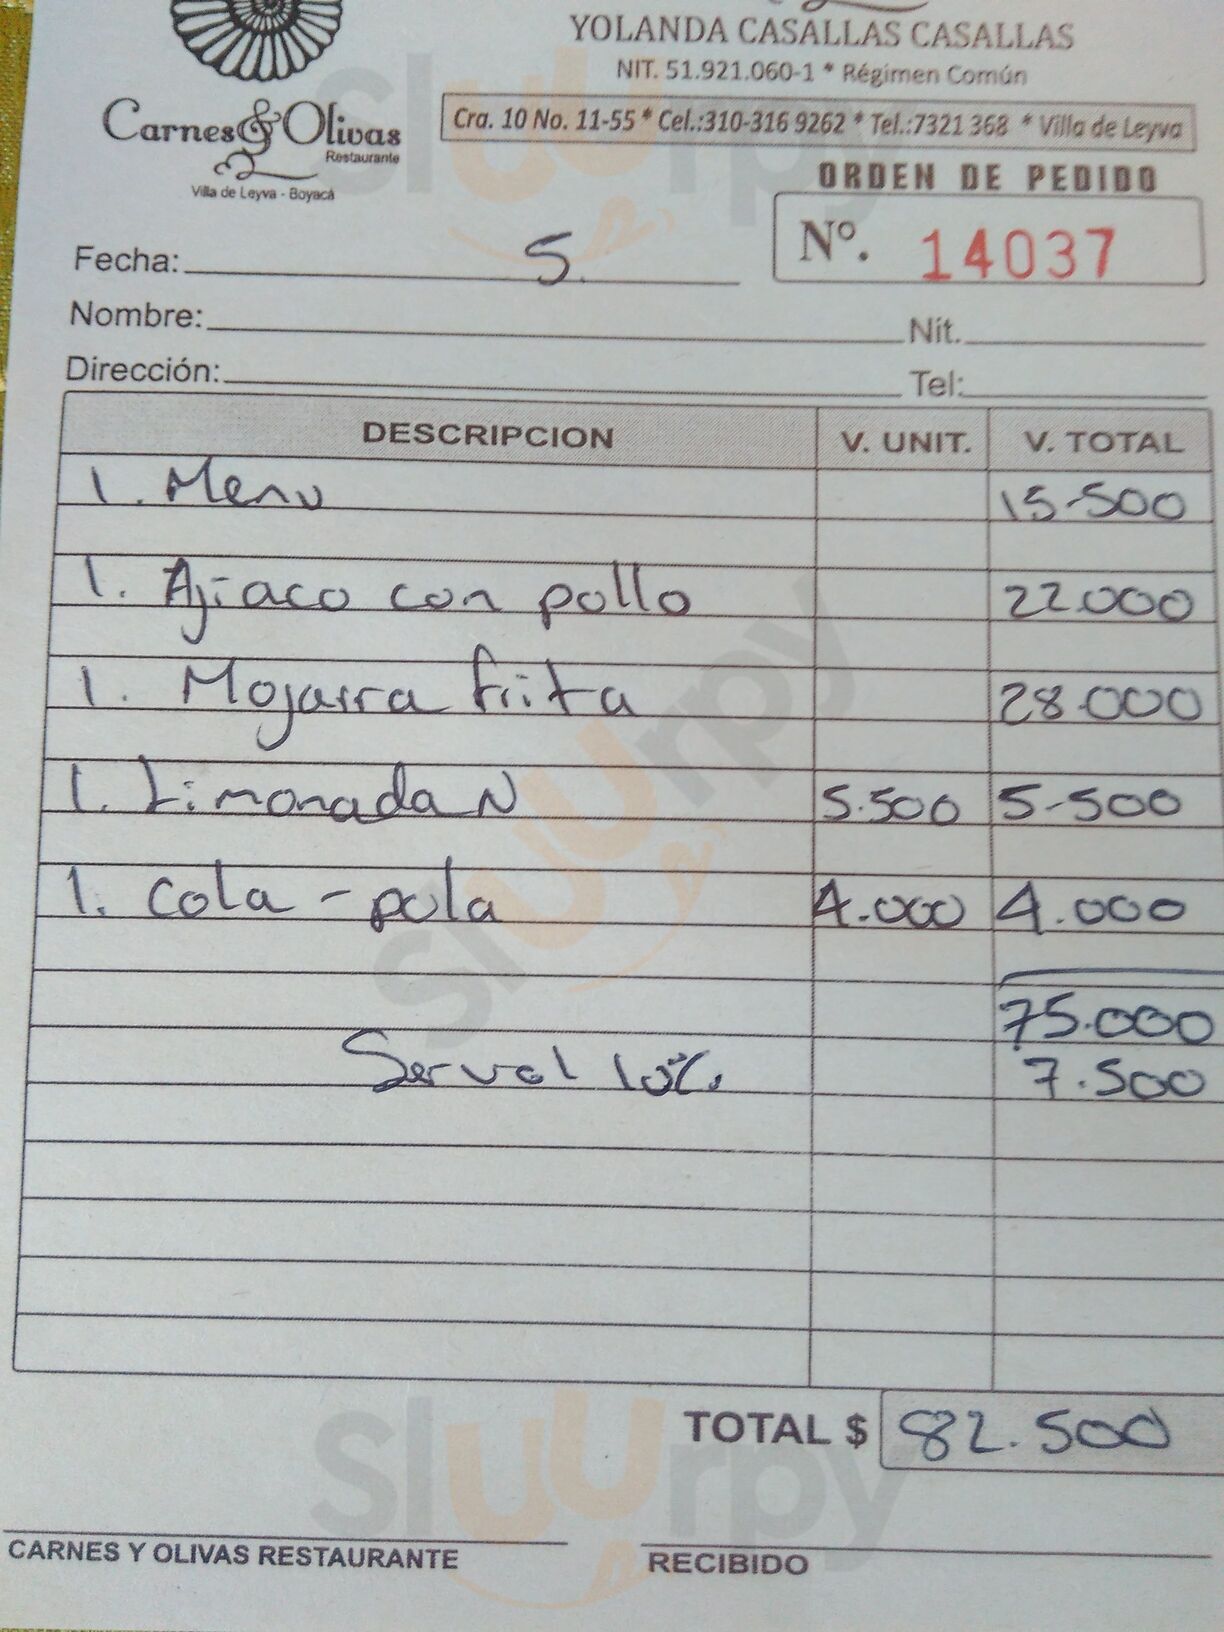 YOLANDA CASALLAS CASALLAS
NIT. 51.921.060-1 * Régimen Común
Carnes & Olivas
Restaurante
Villa de Leyva - Boyacá
Cra. 10 No. 11-55 * Cel.:310-316 9262 * Tel.:7321 368 * Villa de Leyva
ORDEN DE PEDIDO
Nº. 14037
Fecha: 5.
Nombre: Nit.
Dirección: Tel:
DESCRIPCION V. UNIT. V. TOTAL
1. Menu 15-500
1. Ajiaco con pollo 22.000
1. Mojarra frita 28.000
1. Limonada N 5.500 5-500
1. Cola - pola 4.000 4.000
75.000
Ser vol 10%. 7.500
TOTAL $ 82.500
CARNES Y OLIVAS RESTAURANTE RECIBIDO
Sluurpy
Sluurpy
Sluurpy